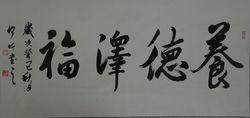 養德澤福
歲次癸巳秋月